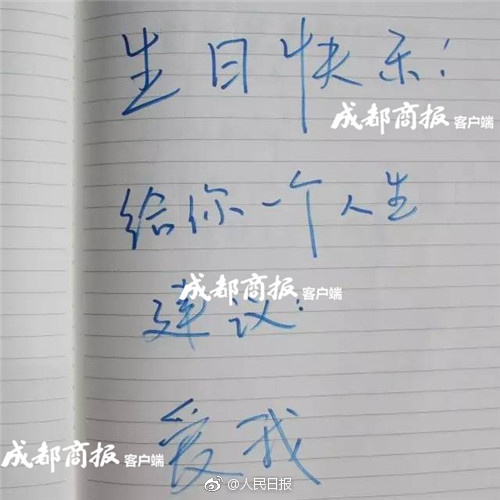 生日快乐！
成都商报 客户端
给你一个人生
成都商报 客户端
建议：
爱我
成都商报 客户端
@人民日报